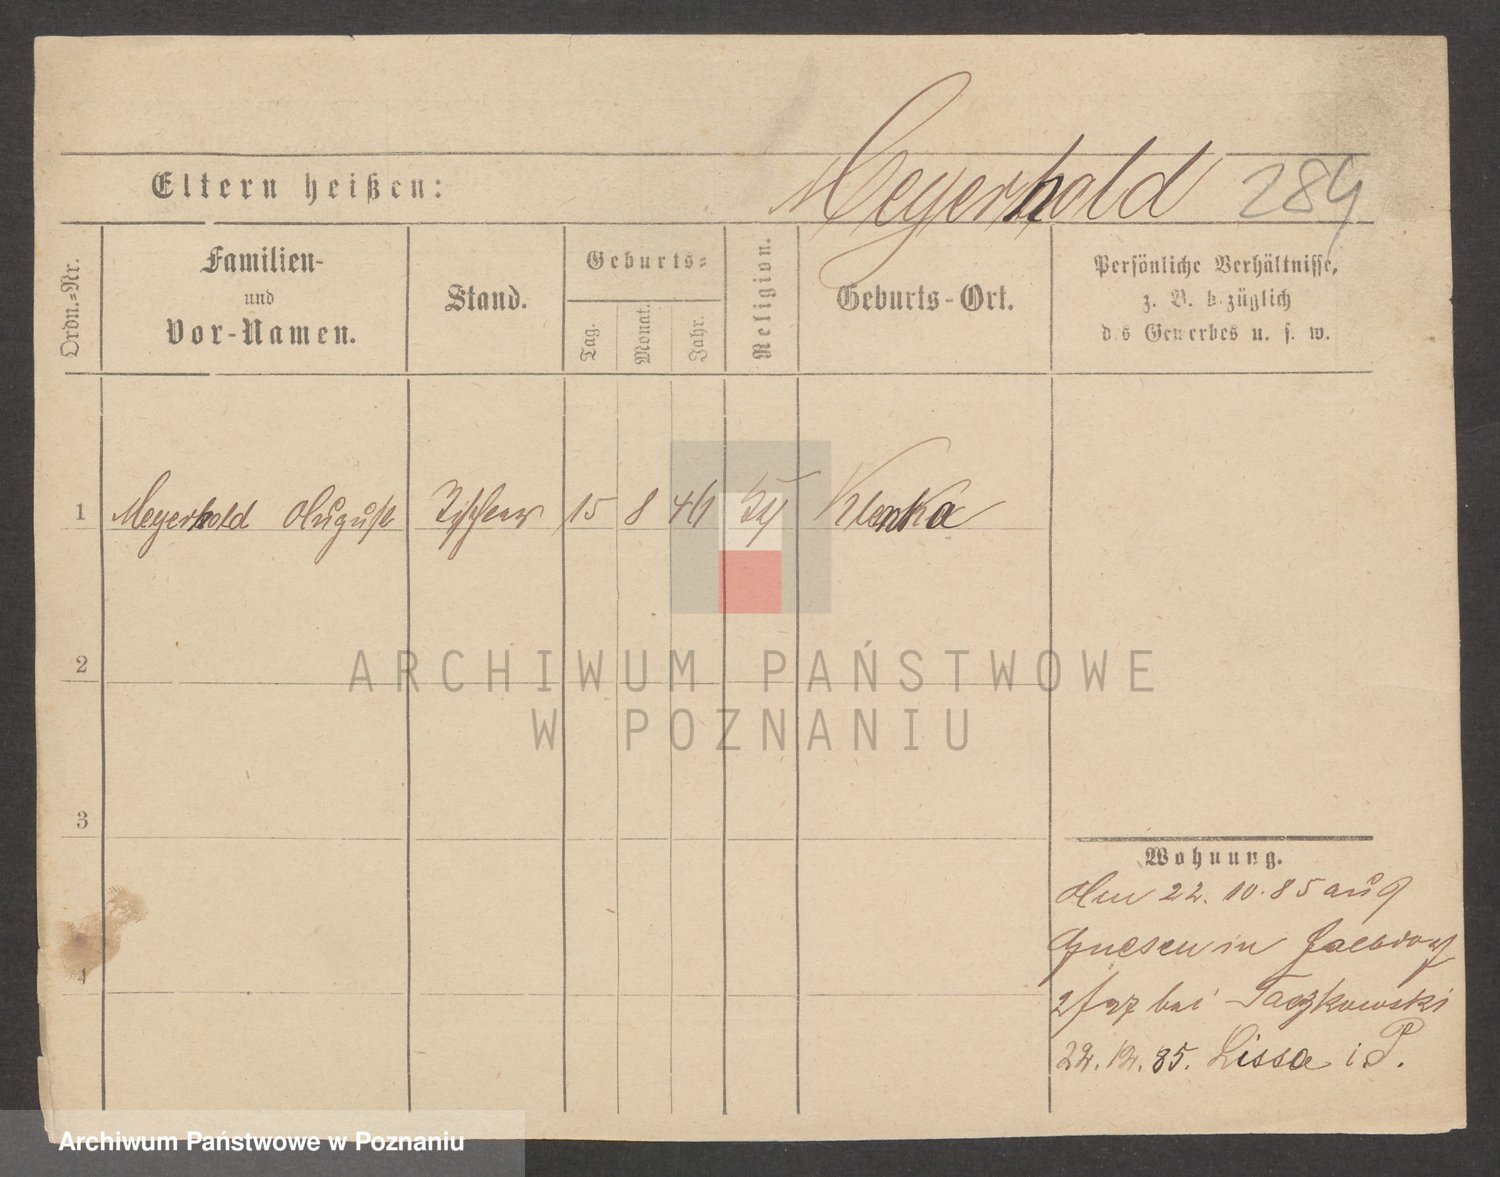 Meyerhold 284
Eltern heißen:
Ordn.=Nr.
Familien-
und
Vor-Namen.
Stand.
Geburts=
Tag.
Monat.
Jahr.
Religion.
Geburts-Ort.
Persönliche Verhältnisse,
z. B. bezüglich
des Gewerbes u. s. w.
1 Meyerhold August Tischler 15 8 46 Klenka
2
3
4
Wohnung.
Am 22. 10. 85 aus
Gnesen in
2/27 bei Taczkowski
22. 12. 85. Lissa i P.
ARCHIWUM PAŃSTWOWE
W POZNANIU
Archiwum Państwowe w Poznaniu